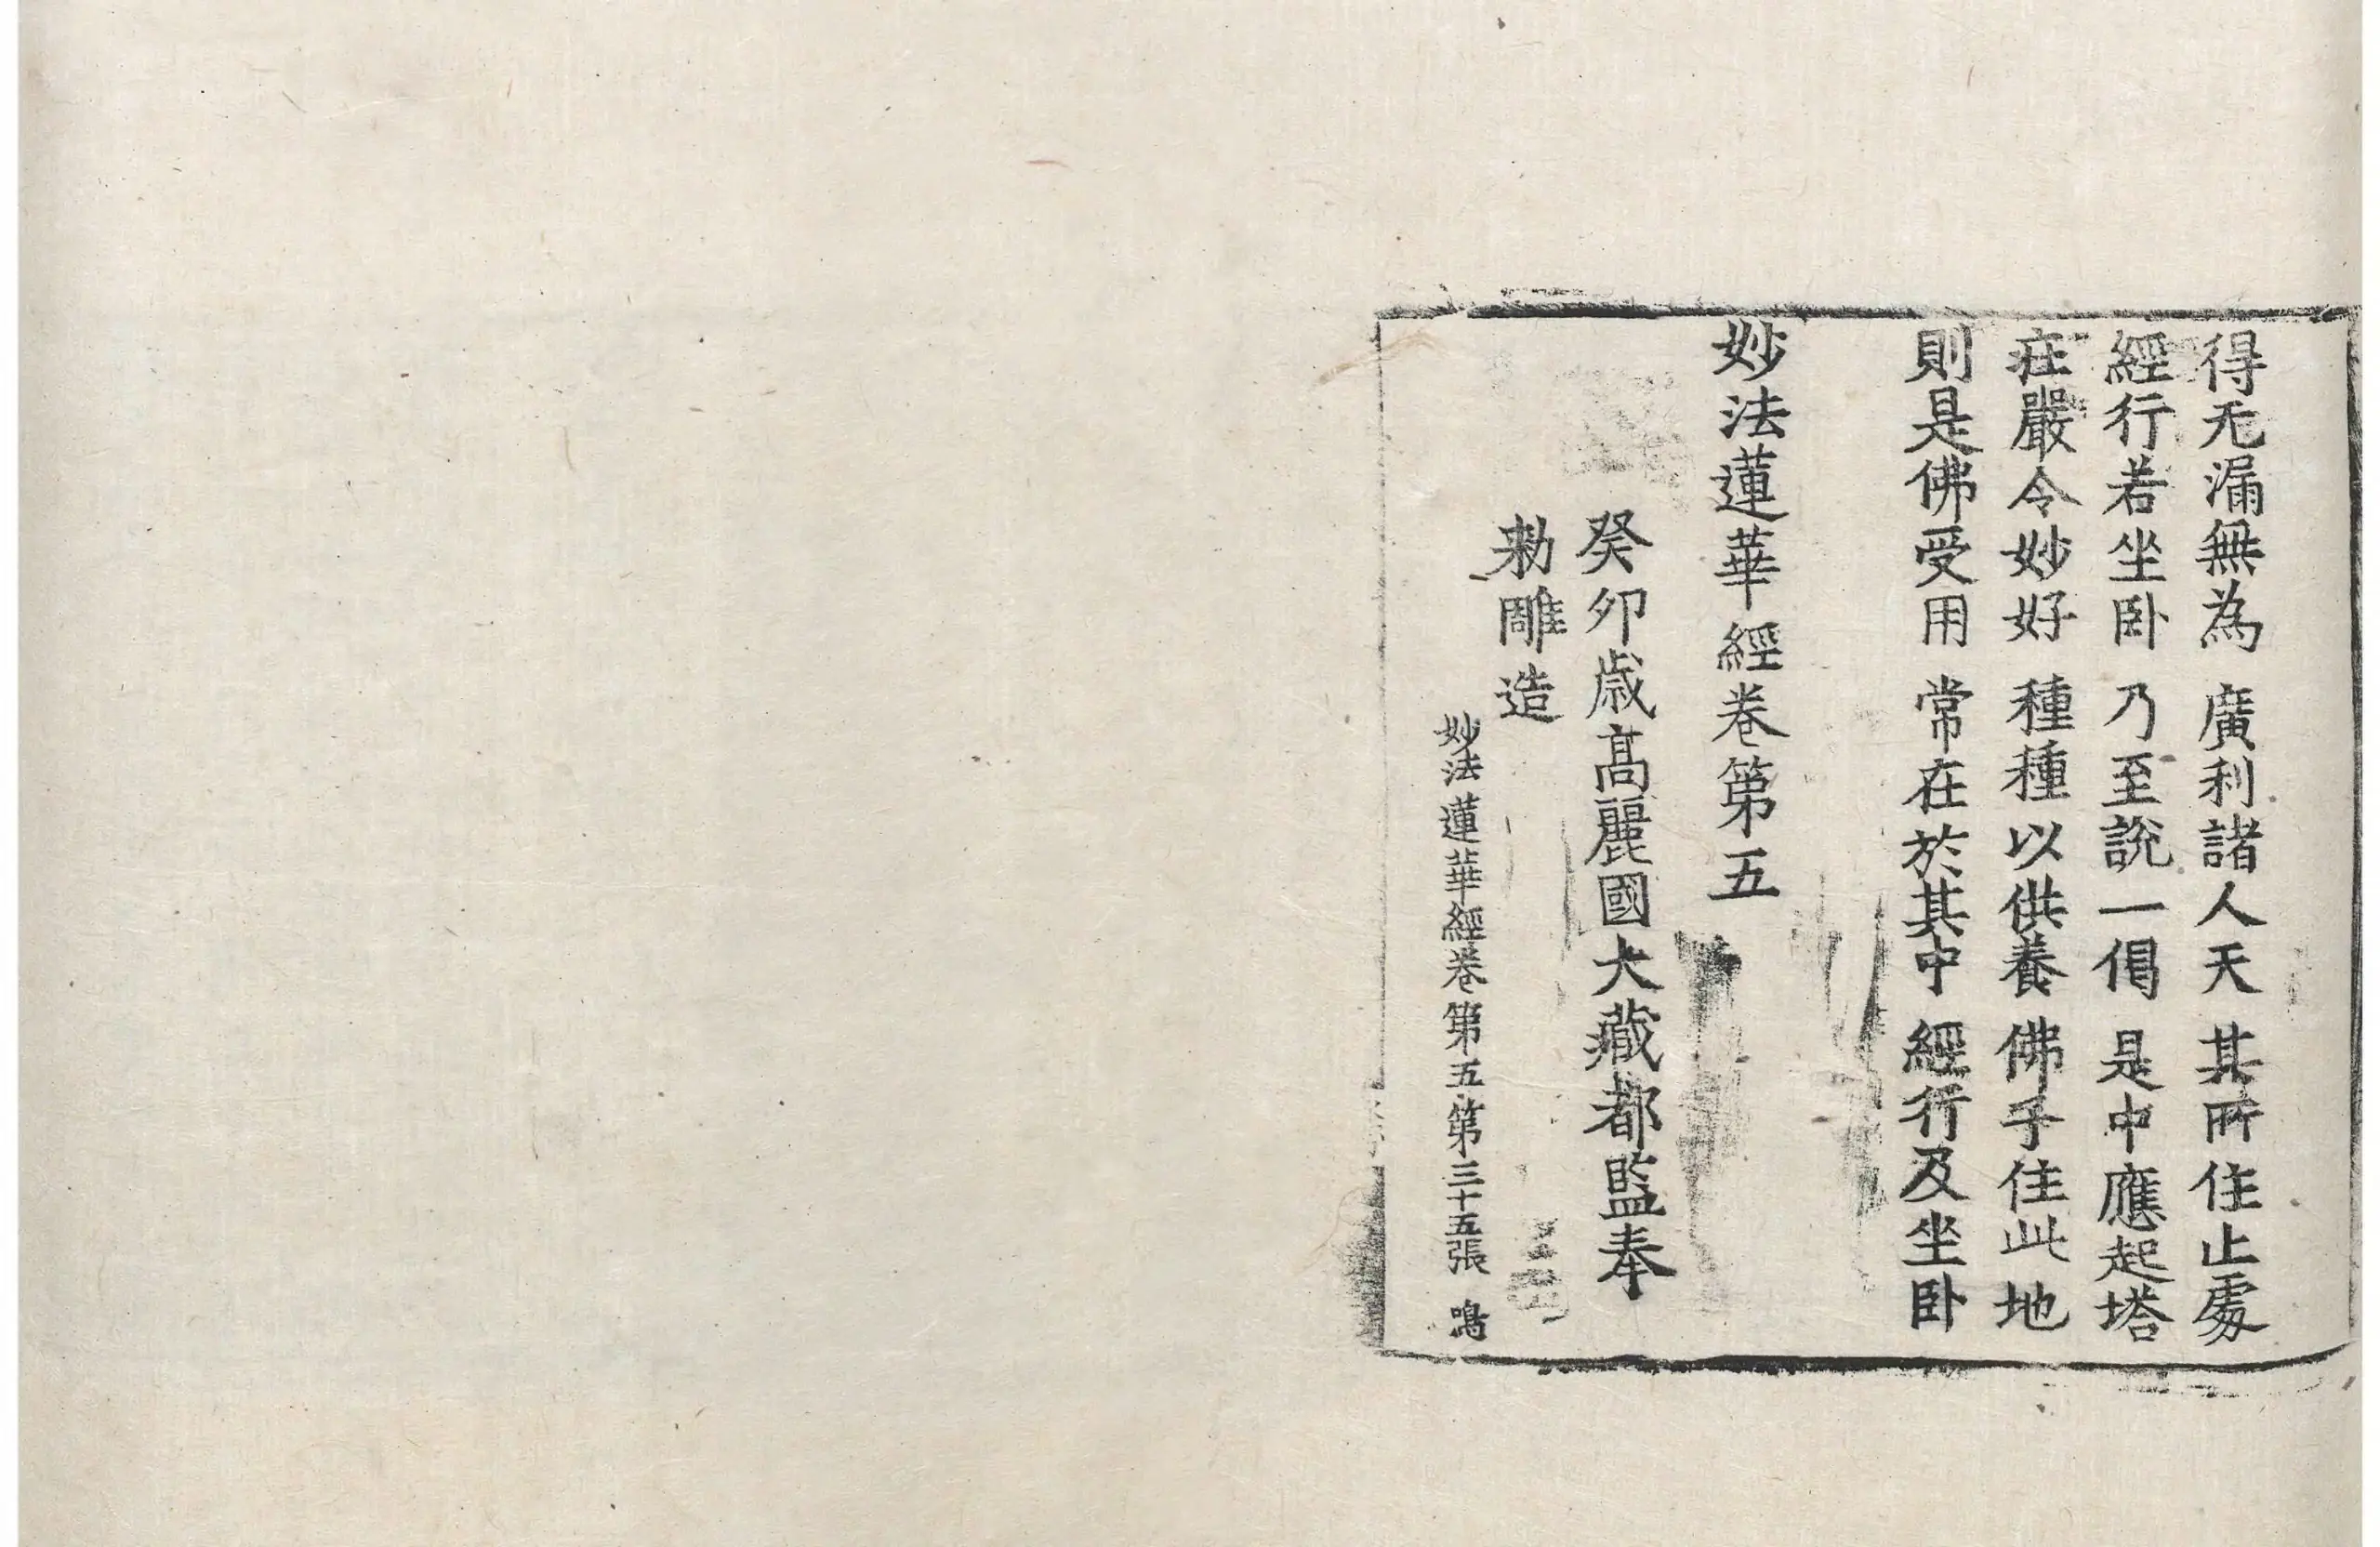 得无漏無為　廣利諸人天　其所住止處
經行若坐卧　乃至說一偈　是中應起塔
㽵嚴令妙好　種種以供養　佛子住此地
則是佛受用　常在於其中　經行及坐卧
妙法蓮華經卷第五
癸卯歲高麗國大藏都監奉
勑雕造
妙法蓮華經卷第五　第三十五張　鳴